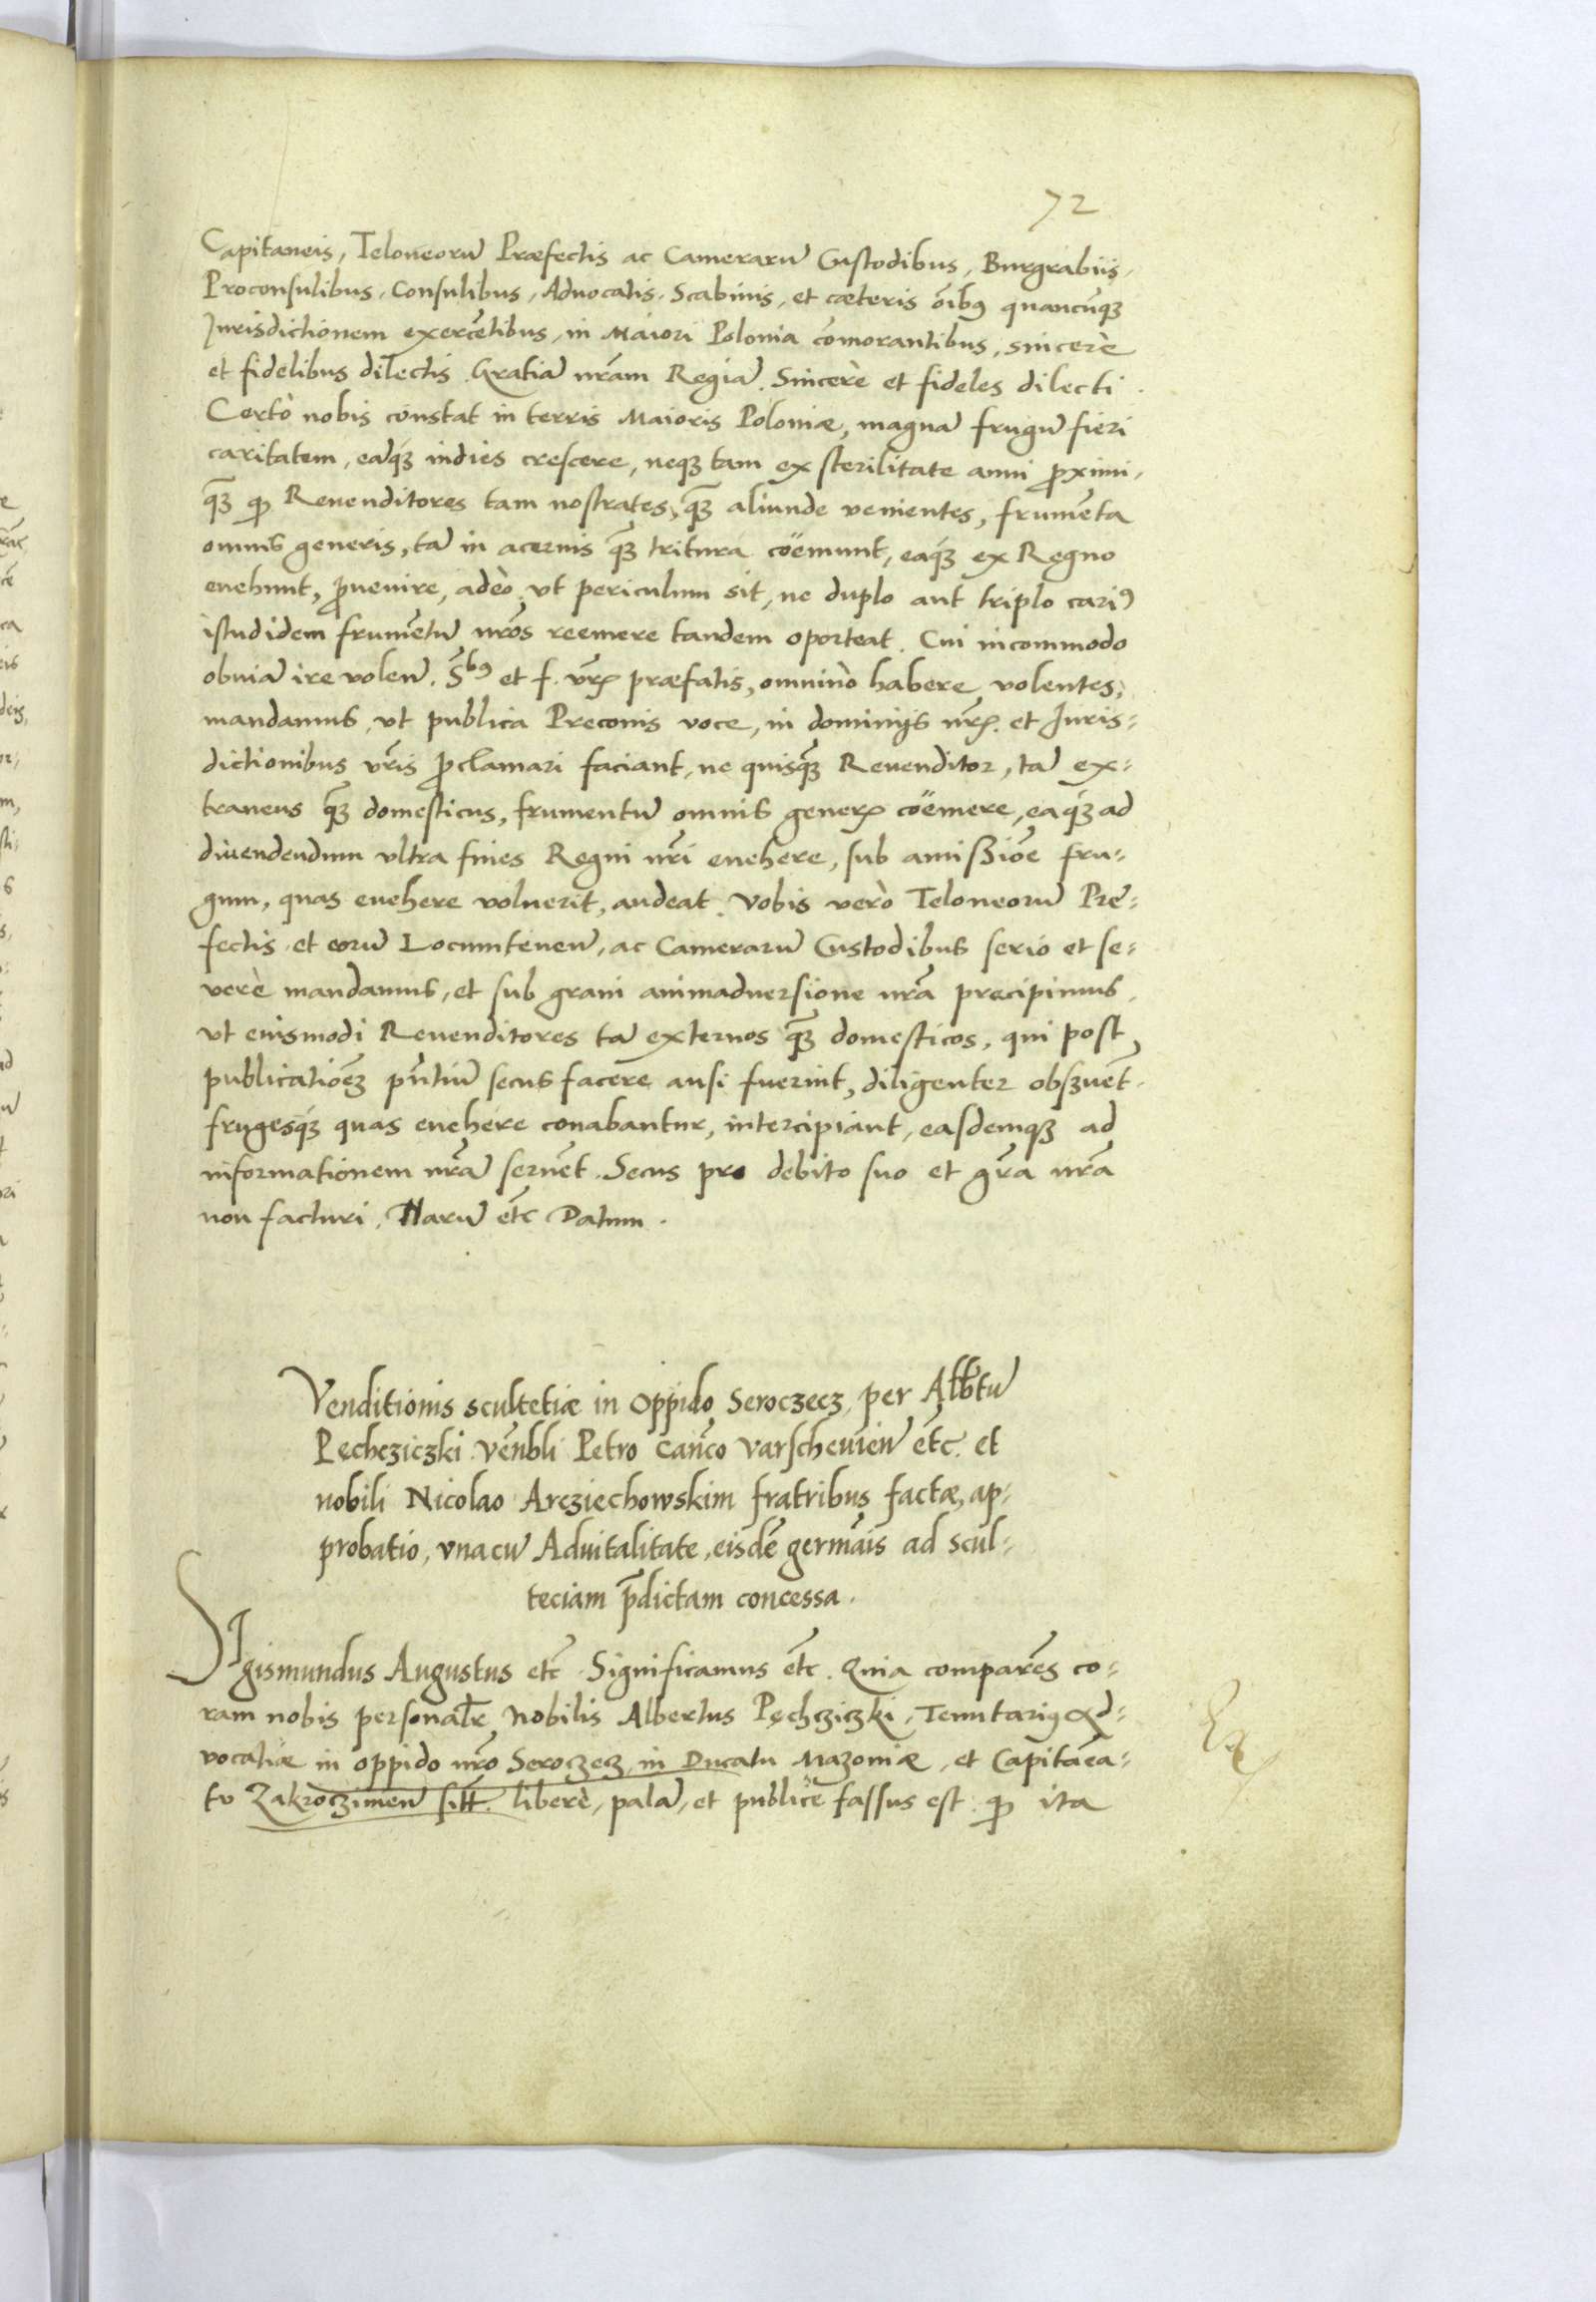 72
Capitaneis, Teloneorū Præfectis ac Camerarū Custodibus, Burgrabiis,
Proconsulibus, Consulibus, Aduocatis, Scabinis, et cæteris oībꝯ quancūqꝫ
Jurisdictionem exercētibus, in Maiori Polonia cōmorantibus, sincerè
et fidelibus dilectis. Gratiā nr̄am Regiā. Sincerè et fideles dilecti.
Certò nobis constat in terris Maioris Poloniæ, magnā frugū fieri
caritatem, eāqꝫ indies crescere, neqꝫ tam ex sterilitate anni ꝓximi,
qꝫ̄ ꝙ Reuenditores tam nostrates, qꝫ̄ aliunde venientes, frumēta
omnis generis, tā in aceruis qꝫ̄ tritura coëmunt, eaqꝫ ex Regno
euehunt, ꝓuenire, adeò vt periculum sit, ne duplo aut triplo cariꝯ
istud idem frumētū nr̄os reemere tandem oporteat. Cui incommodo
obuiā ire volen̄. S̄bꝯ et f. vr̄ꝭ præfatis, omninò habere volentes,
mandamus, vt publica Preconis voce, in dominijs nr̄ꝭ. et Juris-
dictionibus vr̄is ꝓclamari faciant, ne quisqꝫ̄ Reuenditor, tā ex-
traneus qꝫ̄ domesticus, frumentū omnis generꝭ coëmere, eaqꝫ ad
diuendendum vltra fines Regni nr̄i euehere, sub amißiōe fru-
gum, quas euehere voluerit, audeat. Vobis verò Teloneorū Præ-
fectis et eorū Locumtenen̄, ac Camerarū Custodibus seriò et se-
verè mandamus, et sub graui animaduersione nr̄a precipimus,
vt eiusmodi Reuenditores tā externos qꝫ̄ domesticos, qui post
publicatiōeꝫ pn̄tiū secus facere ausi fuerint, diligenter obsꝫuēt.
frugesqꝫ quas euehere conabantur, intercipiant, easdemqꝫ ad
informationem nr̄ā seruēt. Secus pro debito suo et gr̄a nr̄a
non facturi. Harū etc̄ Datum.
Venditionis scultetiæ in oppido Seroczecz, per Albtū
Pęchcziczki vēnbli Petro Canc̄o Varscheuien̄ etc̄. et
nobili Nicolao Arcziechowskim fratribus factæ, ap-
probatio, vnacū Aduitalitate, eisdē germāis ad scul-
teciam p̄dictam concessa.
SIgismundus Augustus etc̄ Significamus etc̄. Quia comparēs co-
ram nobis personalr̄ Nobilis Albertus Pęchcziczki, Tenutariꝯ Ad-
vocatiæ in oppido nr̄o Seroczecz, in Ducatu Mazouiæ, et Capitāea-
tu Zakroczimen̄ sitt̄. liberè, palā, et publicè fassus est. ꝙ ita